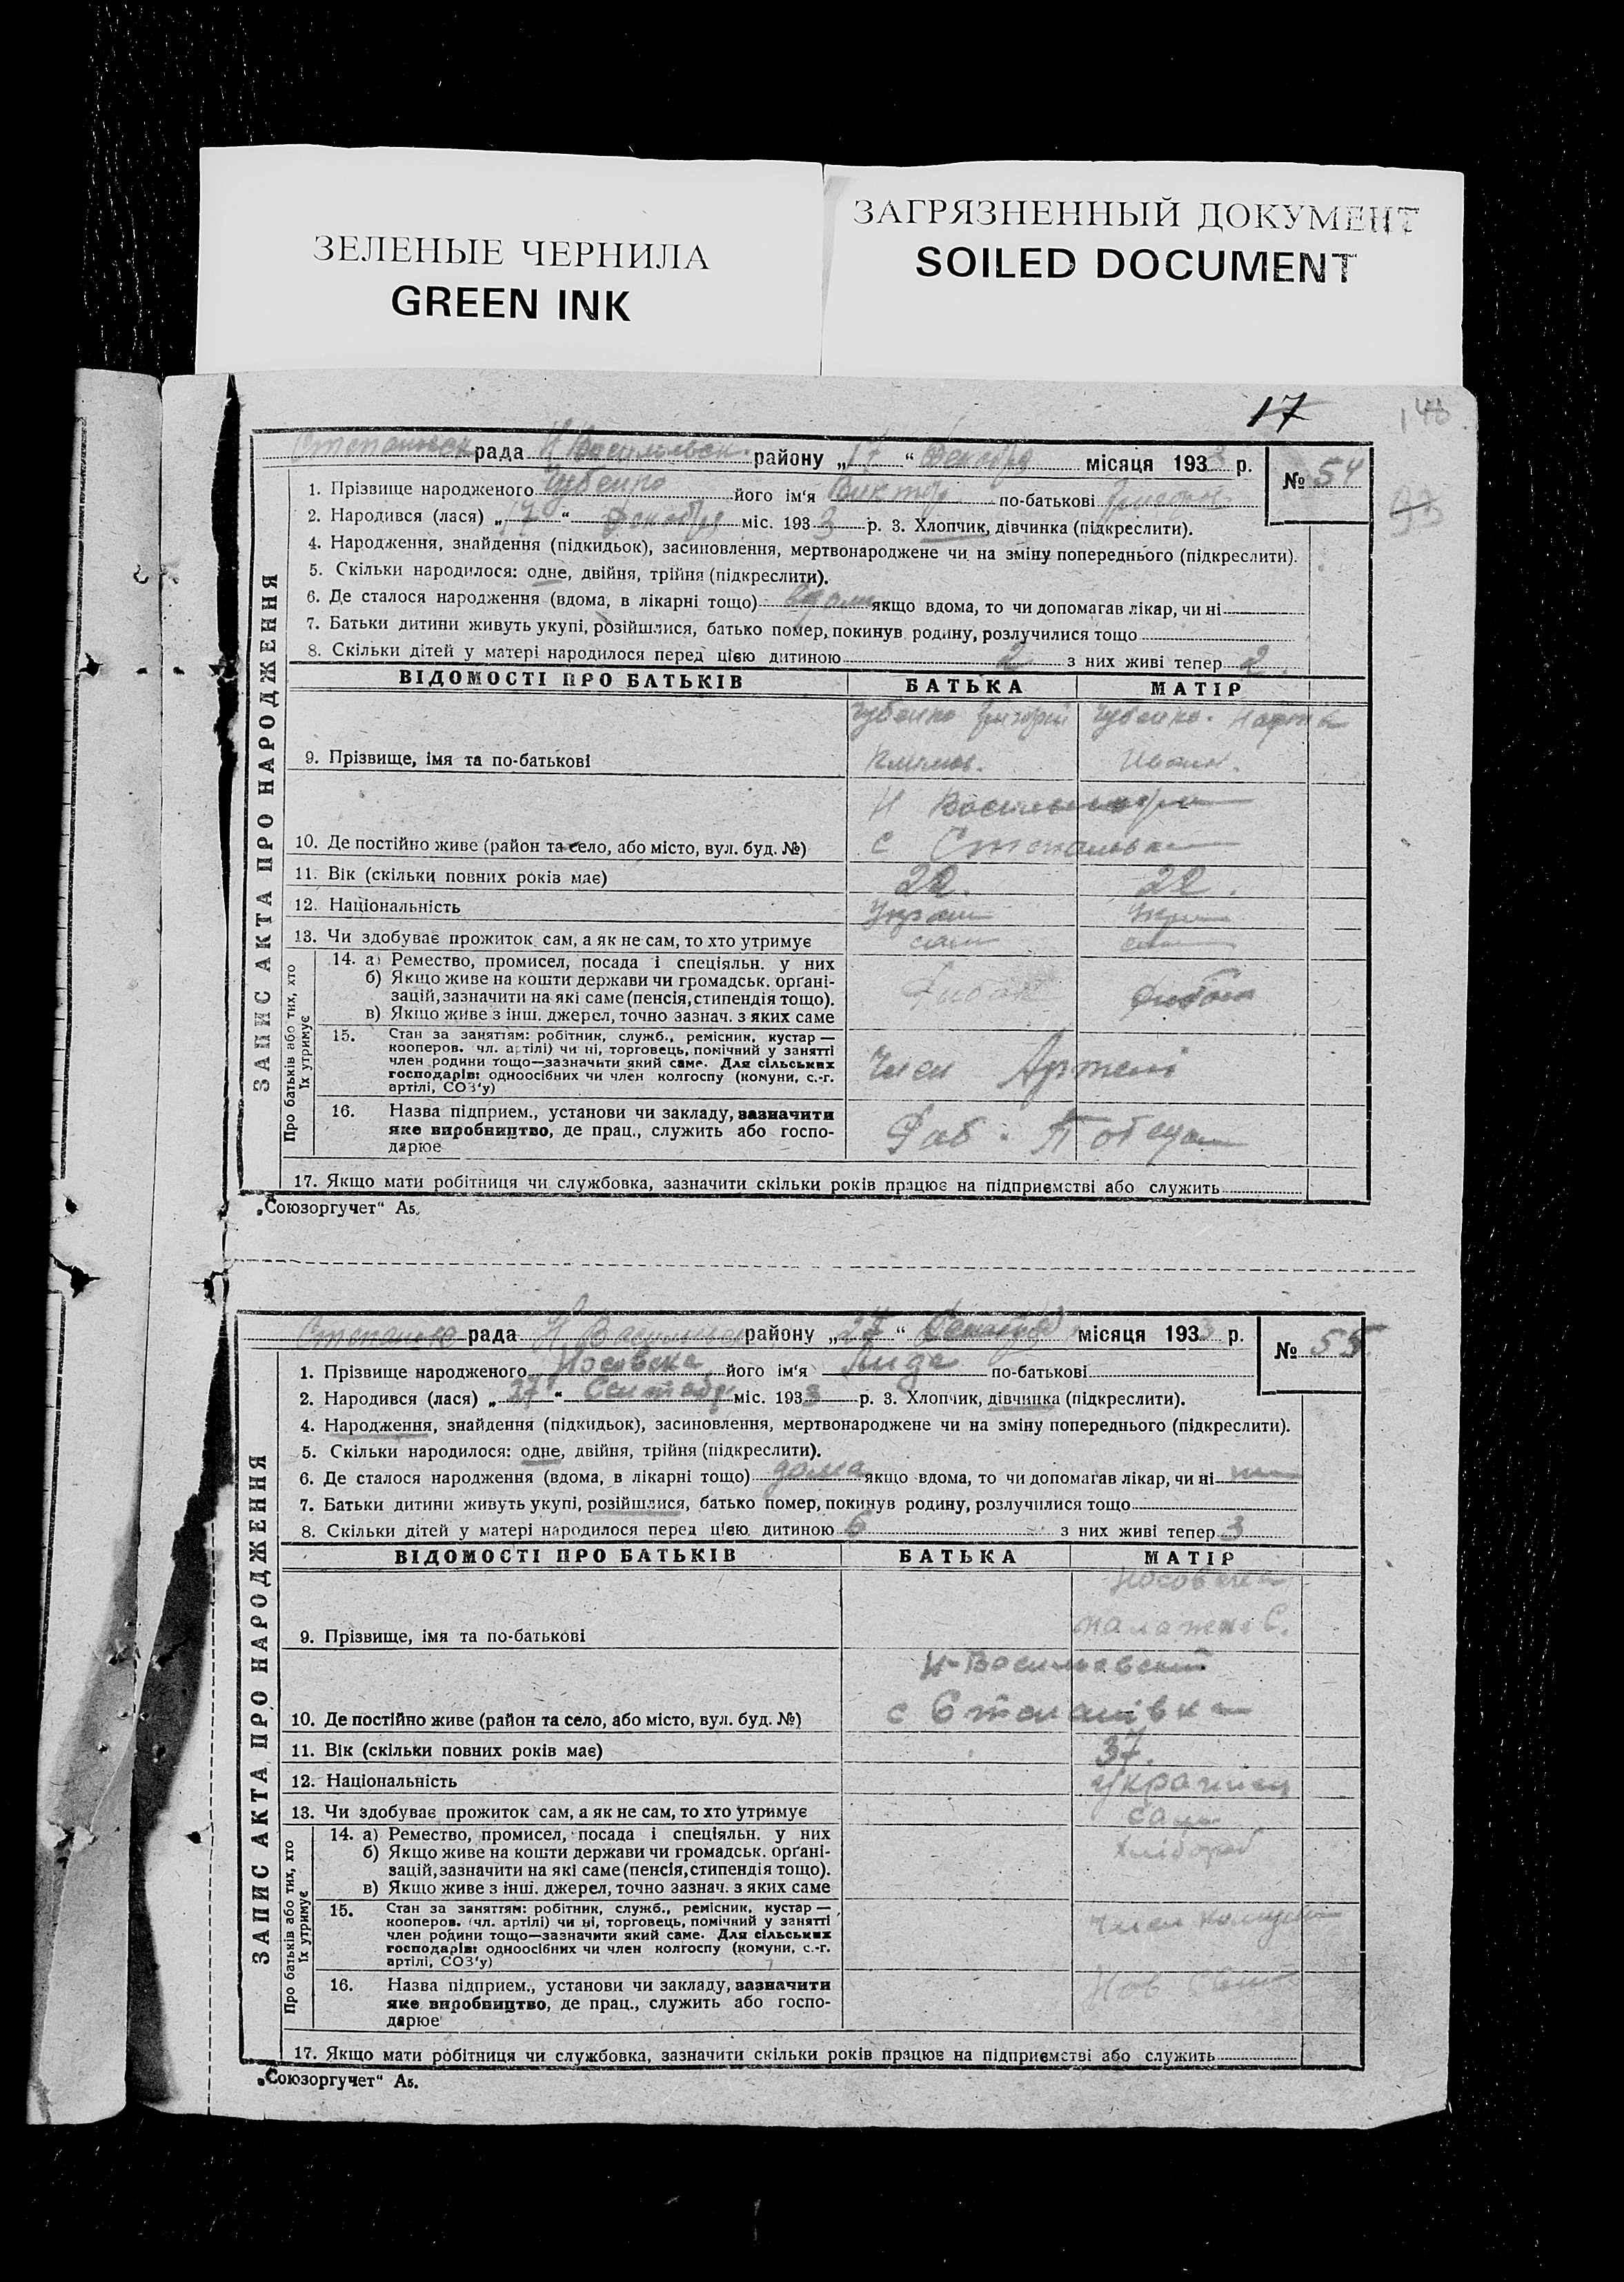 ЗЕЛЕНЫЕ ЧЕРНИЛА
GREEN INK
ЗАГРЯЗНЕННЫЙ ДОКУМЕНТ
SOILED DOCUMENT
17
148
рада районy „17“ Декабря місяця 1933 р.
№ 54
1. Прізвище народженого Чубенко його ім'я Виктор по-батькові
2. Народився (лася) „17“ Декабря міс. 1933 р. 3. Хлопчик, дівчинка (підкреслити).
4. Народження, знайдення (підкидьок), засиновлення, мертвонароджене чи на зміну попереднього (підкреслити).
5. Скільки народилося: одне, двійня, трійня (підкреслити).
6. Де сталося народження (вдома, в лікарні тощо) вдома якщо вдома, то чи допомагав лікар, чи ні
7. Батьки дитини живуть укупі, розійшлися, батько помер, покинув родину, розлучилися тощо
8. Скільки дітей у матері народилося перед цією дитиною 2 з них живі тепер 2
ВІДОМОСТІ ПРО БАТЬКІВ БАТЬКА МАТІР
Чубенко Григорий Чубенко
9. Прізвище, імя та по-батькові Климов. Иван.
10. Де постійно живе (район та село, або місто, вул. буд. №) с Степановка
11. Вік (скільки повних років має) 22. 22.
12. Національність
13. Чи здобуває прожиток сам, а як не сам, то хто утримує сам
14. а) Ремество, промисел, посада і спеціяльн. у них
б) Якщо живе на кошти держави чи громадськ. орґані-
зацій, зазначити на які саме (пенсія, стипендія тощо).
в) Якщо живе з інш. джерел, точно зазнач. з яких саме
15. Стан за заняттям: робітник, служб., ремісник, кустар —
кооперов. чл. артілі) чи ні, торговець, помічний у занятті
член родини тощо—зазначити який саме. Для сільських
господарів: одноосібних чи член колгоспу (комуни, с.-г.
артілі, СОЗ'у)
Член Артели
16. Назва підприєм., установи чи закладу, зазначити
яке виробництво, де прац., служить або госпо-
дарює
17. Якщо мати робітниця чи службовка, зазначити скільки років працює на підприємстві або служить
ЗАПИС АКТА ПРО НАРОДЖЕННЯ
Про батьків або тих, хто
їх утримує
„Союзоргучет“ А5.
рада району „27“ місяця 1933 р.
№ 55
1. Прізвище народженого Носовска його ім'я Лида по-батькові
2. Народився (лася) „27“ Сентябр міс. 1933 р. 3. Хлопчик, дівчинка (підкреслити).
4. Народження, знайдення (підкидьок), засиновлення, мертвонароджене чи на зміну попереднього (підкреслити).
5. Скільки народилося: одне, двійня, трійня (підкреслити).
6. Де сталося народження (вдома, в лікарні тощо) дома якщо вдома, то чи допомагав лікар, чи ні
7. Батьки дитини живуть укупі, розійшлися, батько помер, покинув родину, розлучилися тощо
8. Скільки дітей у матері народилося перед цією дитиною 6 з них живі тепер 3
ВІДОМОСТІ ПРО БАТЬКІВ БАТЬКА МАТІР
9. Прізвище, імя та по-батькові
Н-Васильевский
10. Де постійно живе (район та село, або місто, вул. буд. №) с Степанівка
11. Вік (скільки повних років має) 37.
12. Національність
13. Чи здобуває прожиток сам, а як не сам, то хто утримує сама
14. а) Ремество, промисел, посада і спеціяльн. у них хлібороб
б) Якщо живе на кошти держави чи громадськ. орґані-
зацій, зазначити на які саме (пенсія, стипендія тощо).
в) Якщо живе з інш. джерел, точно зазнач. з яких саме
15. Стан за заняттям: робітник, служб., ремісник, кустар —
кооперов. (чл. артілі) чи ні, торговець, помічний у занятті
член родини тощо—зазначити який саме. Для сільських
господарів: одноосібних чи член колгоспу (комуни, с.-г.
артілі, СОЗ'у)
Член комуни
16. Назва підприєм., установи чи закладу, зазначити
яке виробництво, де прац., служить або госпо-
дарює
17. Якщо мати робітниця чи службовка, зазначити скільки років працює на підприємстві або служить
ЗАПИС АКТА ПРО НАРОДЖЕННЯ
Про батьків або тих, хто
їх утримує
„Союзоргучет“ А5.